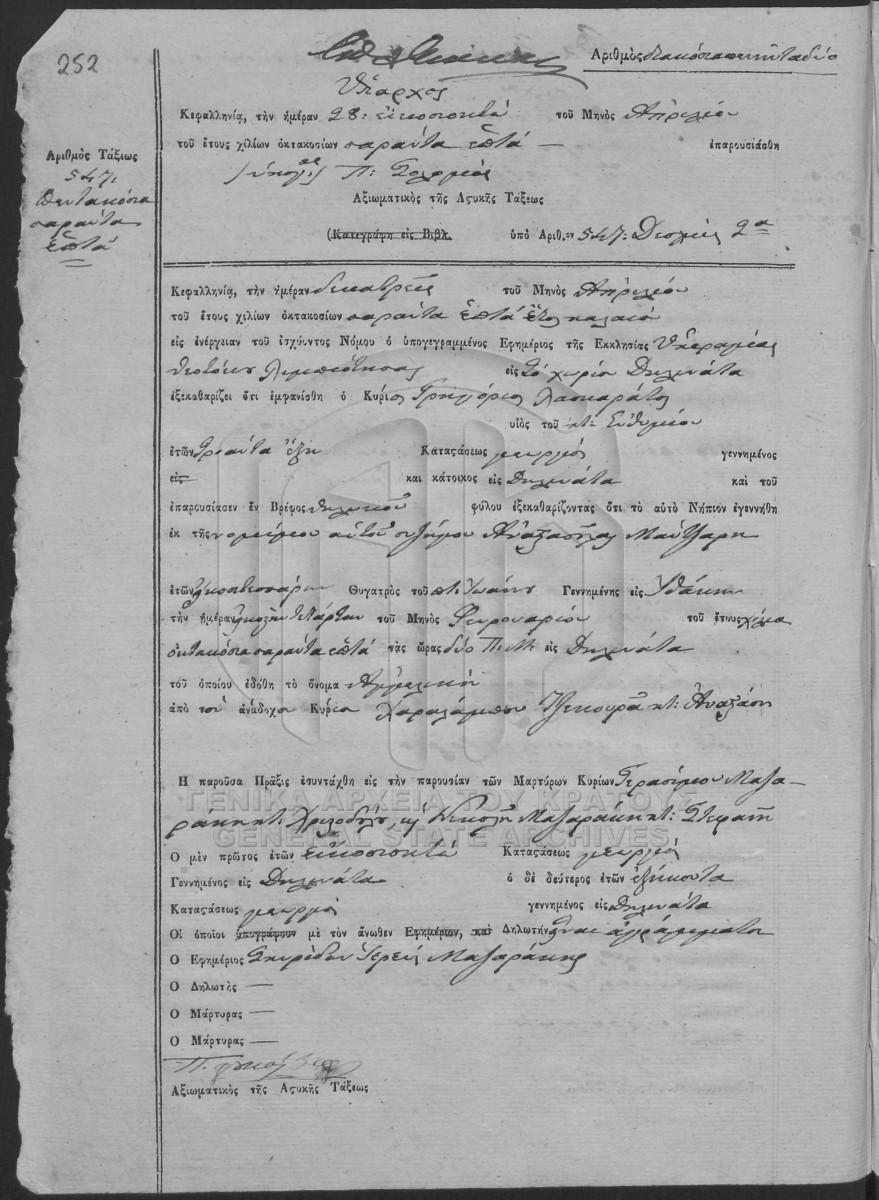 252
Ἀριθμὸς διακόσια πενῆντα δύο
Ἔπαρχος
Κεφαλληνίᾳ, τὴν ἡμέραν 28: εἰκοσιοκτὼ τοῦ Μηνὸς Ἀπριλίου
τοῦ ἔτους χιλίων ὀκτακοσίων σαράντα ἑπτὰ — ἐπαρουσιάσθη
Π:
Ἀξιωματικὸς τῆς Ἀστυκῆς Τάξεως
(Κατεγράφη εἰς Βιβλ. ὑπὸ Ἀριθ.ον 547: 2α
Ἀριθμὸς Τάξεως
547:
Πεντακόσια
σαράντα
ἑπτὰ
Κεφαλληνίᾳ, τὴν ἡμέραν δεκατρεῖς τοῦ Μηνὸς Ἀπριλίου
τοῦ ἔτους χιλίων ὀκτακοσίων σαράντα ἑπτὰ ἔτος παλαιὸ
εἰς ἐνέργειαν τοῦ ἰσχύοντος Νόμου ὁ ὑπογεγραμμένος Ἐφημέριος τῆς Ἐκκλησίας Ὑπεραγίας
Θεοτόκου εἰς τὸ χωρίο Διλινάτα
ἐξεκαθαρίζει ὅτι ἐμφανίσθη ὁ Κύριος Γρηγόριος Λασκαράτος
υἱὸς τοῦ ποτ: Εὐθυμίου
ἐτῶν τριάντα ἕξη Κατασάσεως γεωργὸς γεννημένος
εἰς καὶ κάτοικος εἰς Διλινάτα καὶ τοῦ
ἐπαρουσίασεν ἓν Βρέφος θηλυκοῦ φύλου ἐξεκαθαρίζοντας ὅτι τὸ αὐτὸ Νήπιον ἐγεννήθη
ἐκ τῆς νομίμου αὐτοῦ συζύγου Ἀναστασίας Μαντζαρη
ἐτῶν εἰκοσιτεσσάρων Θυγατρὸς τοῦ ποτ. Ἰωάννου Γεννημένης εἰς Ἰθάκην
τὴν ἡμέραν εἰκοστὴν τετάρτην τοῦ Μηνὸς Φευρουαρίου τοῦ ἔτους χίλια
ὀκτακόσια σαράντα ἑπτὰ τὰς ὥρας δύο Π. Μ. εἰς Διλινάτα
τοῦ ὁποίου ἐδόθη τὸ ὄνομα Ἀγγελική
ἀπὸ τὸν ἀνάδοχον Κύριον Χαράλαμπον ποτ: Ἀναστάση
Ἡ παροῦσα Πρᾶξις ἐσυντάχθη εἰς τὴν παρουσίαν τῶν Μαρτύρων Κυρίων Γερασίμου Μαζα-
ράκη ποτ: Χριστοδούλου καὶ Νικολῆ Μαζαράκη ποτ: Στεφανῆ
Ὁ μὲν πρῶτος ἐτῶν εἰκοσιοκτὼ Κατασάσεως γεωργὸς
Γεννημένος εἰς Διλινάτα ὁ δὲ δεύτερος ἐτῶν ἑξήκοντα
Κατασάσεως γεωργὸς γεννημένος εἰς Διλινάτα
Οἱ ὁποῖοι ὑπογράφουν μὲ τὸν ἄνωθεν Ἐφημέριον, καὶ Δηλωτὴν εἶναι ἀγράμματοι
Ὁ Ἐφημέριος Σπυρίδων Ἱερεὺς Μαζαράκης
Ὁ Δηλωτὴς —
Ὁ Μάρτυρας —
Ὁ Μάρτυρας —
Ἀξιωματικὸς τῆς Ἀστυκῆς Τάξεως
ΓΕΝΙΚΑ ΑΡΧΕΙΑ ΤΟΥ ΚΡΑΤΟΥΣ
GENERAL STATE ARCHIVES